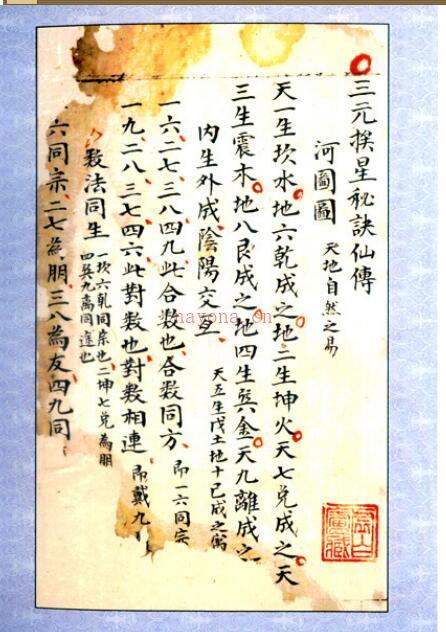 三元揆星秘訣仙傳
河圖圖 天地自然之易
天一生坎水地六乾成之地二生坤火天七兌成之天
三生震木地八艮成之地四生巽金天九離成之
內生外成陰陽交互 天五生戊土地十己成之
一六二七三八四九此合數也合數同方 即一六同宗
一九二八三七四六此對數也對數相連 即戴九
數法同生 一坎六乾同宗也二坤七兌為朋
四巽九離同
也
六同宗二七為朋三八為友四九同
nayona.cn